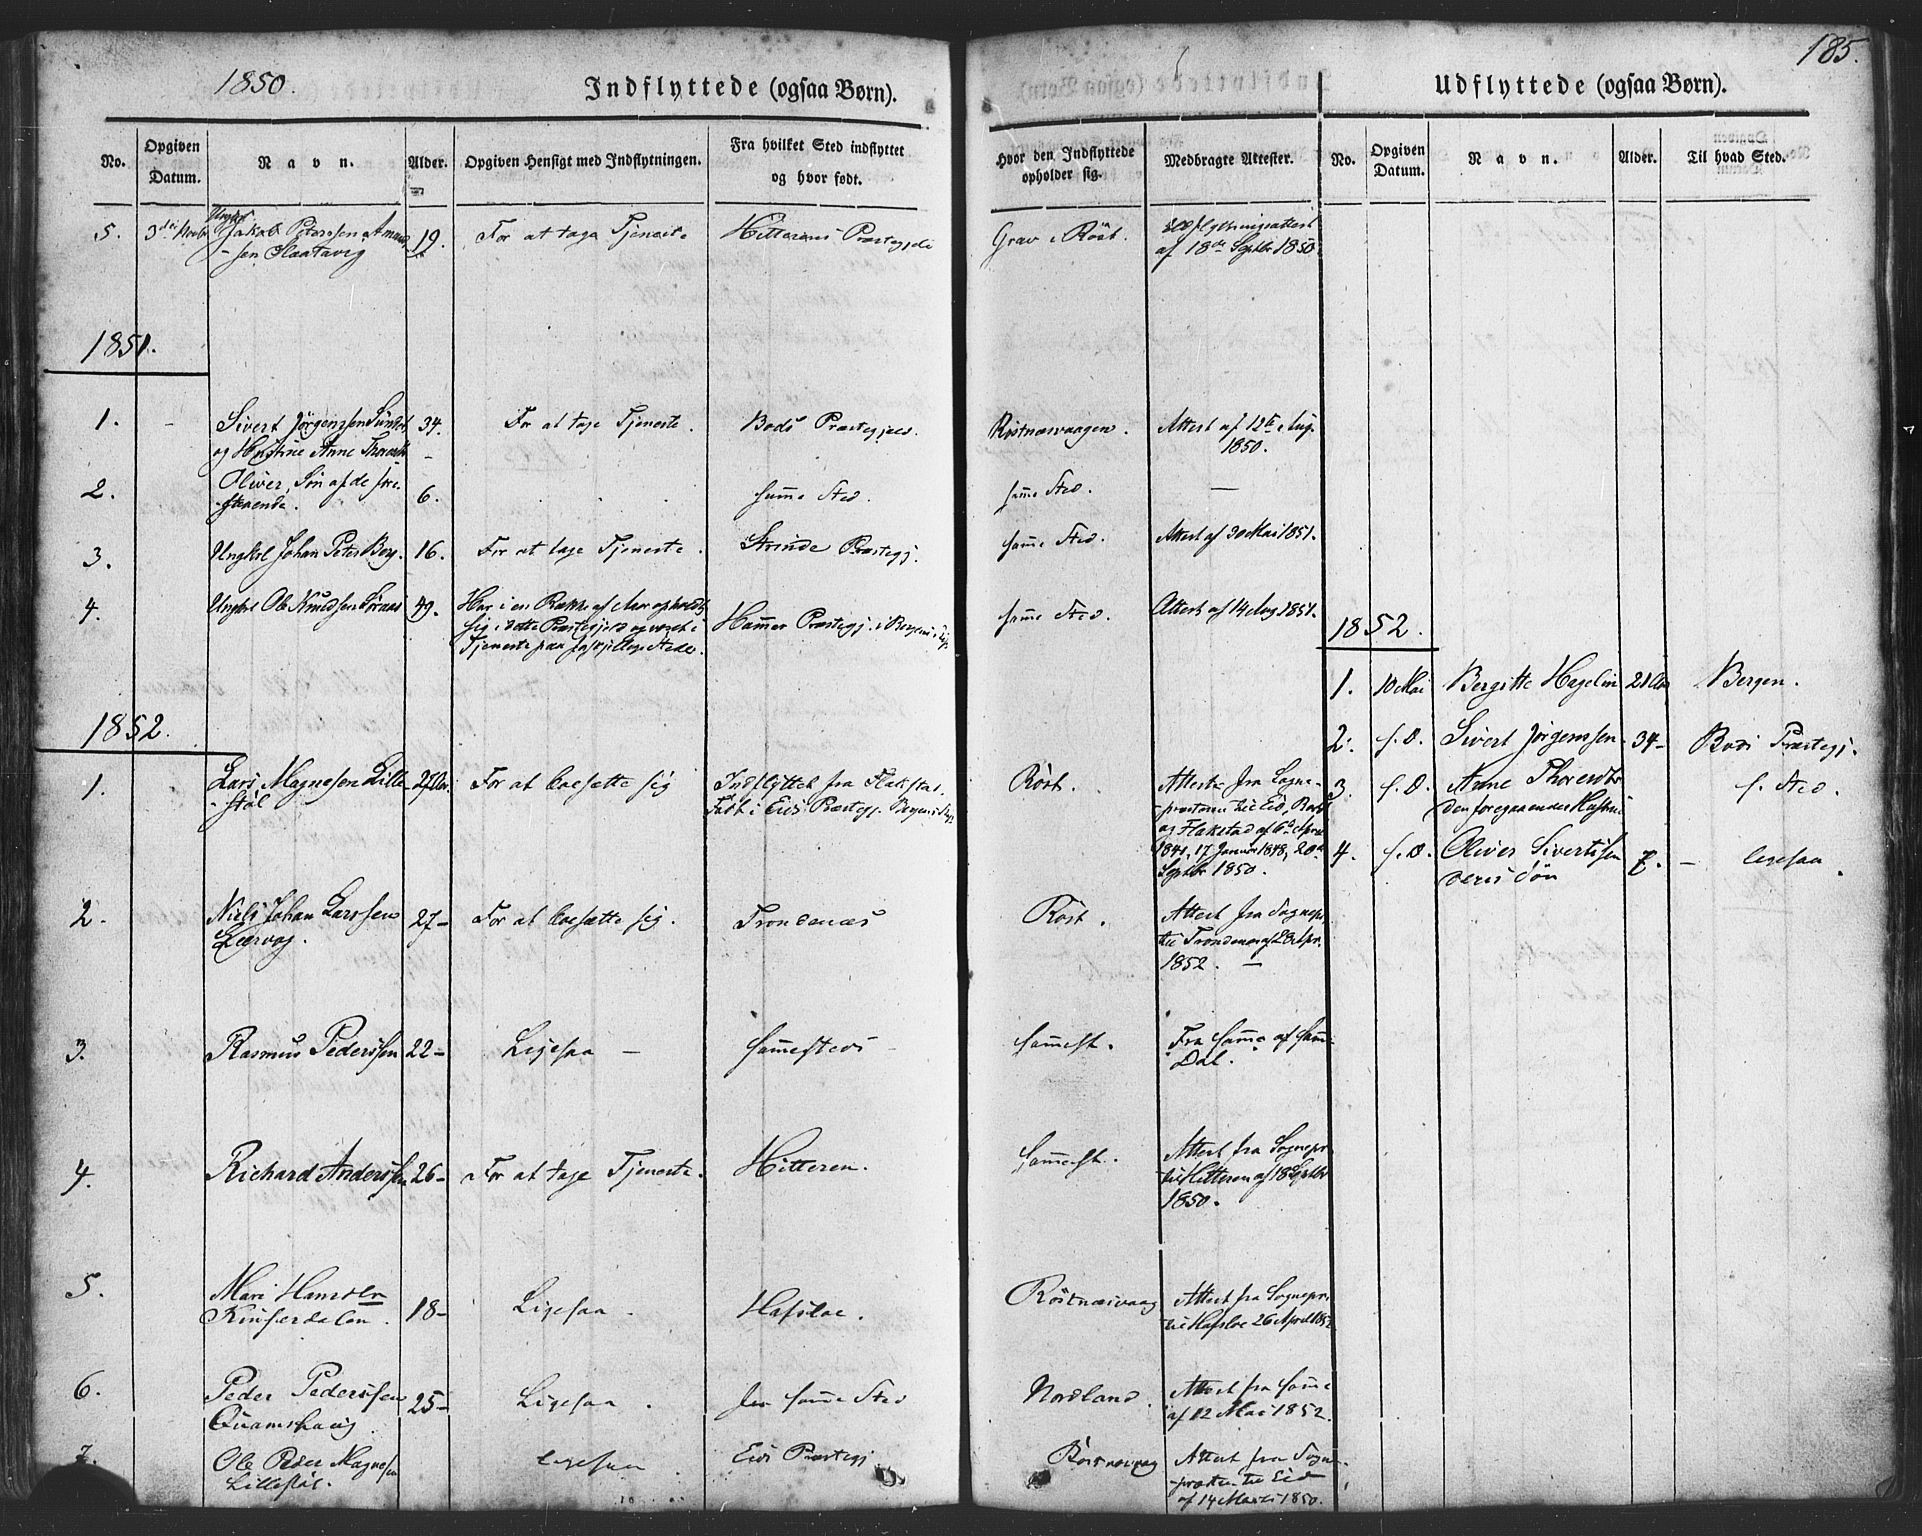 185.
1850.
Indflyttede (ogsaa Børn).
No.
Opgiven Datum.
Navn.
Alder.
Opgiven Hensigt med Indflytningen.
Fra hvilket Sted indflyttet
og hvor født.
Hvor den Indflyttede
opholder sig.
Medbragte Attester.
5.
Jakob Peterssen
19.
For at tage Tjeneste
Hitterens Præstegjd
Grav i Röst.
af 18de Septbr 1850.
1851.
1.
Sivert Jörgenssen
og Hustrue Anne
34.
For at tage Tjeneste.
Bodö Præstegjeld.
Röstnæsvaagen.
Attest af 12te Aug.
1850.
2.
Oliver, Søn af de fore-
-staaende.
6.
samme Sted.
samme Sted.
3.
Ungkl Johan Peter Berg.
16.
For at tage Tjeneste.
Strinde Præstegj.
samme Sted.
Attest af 30 Mai 1851.
4.
Ungkl Ole Knudsen
49.
Har i en Række af Aar opholdt
sig i dette Præstegjeld og været i
Tjeneste paa forskjellige Steder.
Hammer Præstegj. i Bergens Stift
samme Sted.
Attest af 14 Aug 1851.
1852.
1.
Lars Magnesen Lille-
-stöl
27 Aar.
For at bosætte sig
Indflyttet fra Flakstad.
Född i Eids Præstegj. Bergens Stift
Röst.
Atteste fra Sogne-
-præsterne til Eid, Bodö
og Flakstad af 6te Apr
1841, 17 Januar 1848, 20de
Septbr 1850.
2.
Niels Johan Larssen
Leervog.
27-
For at bosætte sig.
Trondenæs
Röst.
Attest fra Sognepr.
til Trondenæs af 2 Apr.
1852. -
3.
Rasmus Pederssen
22-
Ligesaa -
Sammesteds -
Sammest.
Fra Samme af samme
Dat.
4.
Richard Anderssen
26-
For at tage Tjeneste.
Hitteren.
Sammest.
Attest fra Sognepr.
til Hitteren af 18 Septbr
1850.
5.
Mari Hansdtr
Kinserdalen.
18-
Ligesaa -
Hafsloe.
Röstnæsvaag
Attest fra Sognepr.
til Hafsloe 26 April 1852
6.
Peder Pederssen
Quamshaug.
25-
Ligesaa.
fra samme Sted
Nordland.
Attest fra samme
af 12 Mai 1852.
7.
Ole Peder Magnesen
Lillestöl.
ligesaa
Eids Præstegj
Röstnæsvaag
Attest fra Sogne-
-præsten til Eid
af 14 Marts 1850.
Udflyttede (ogsaa Børn).
No.
Opgiven
Datum.
Navn.
Alder.
Til hvad Sted.
1852.
1.
10 Mai
Bergitte Hagelin
21 Aar
Bergen.
2.
s. D.
Sivert Jörgenssen
34-
Bodö Præstegj.
3.
s. D.
Anne Thoresdtr
den foregaaendes Hustrue
s. Sted.
4.
s. D.
Oliver Sivertssen
deres Søn
7. -
ligesaa.